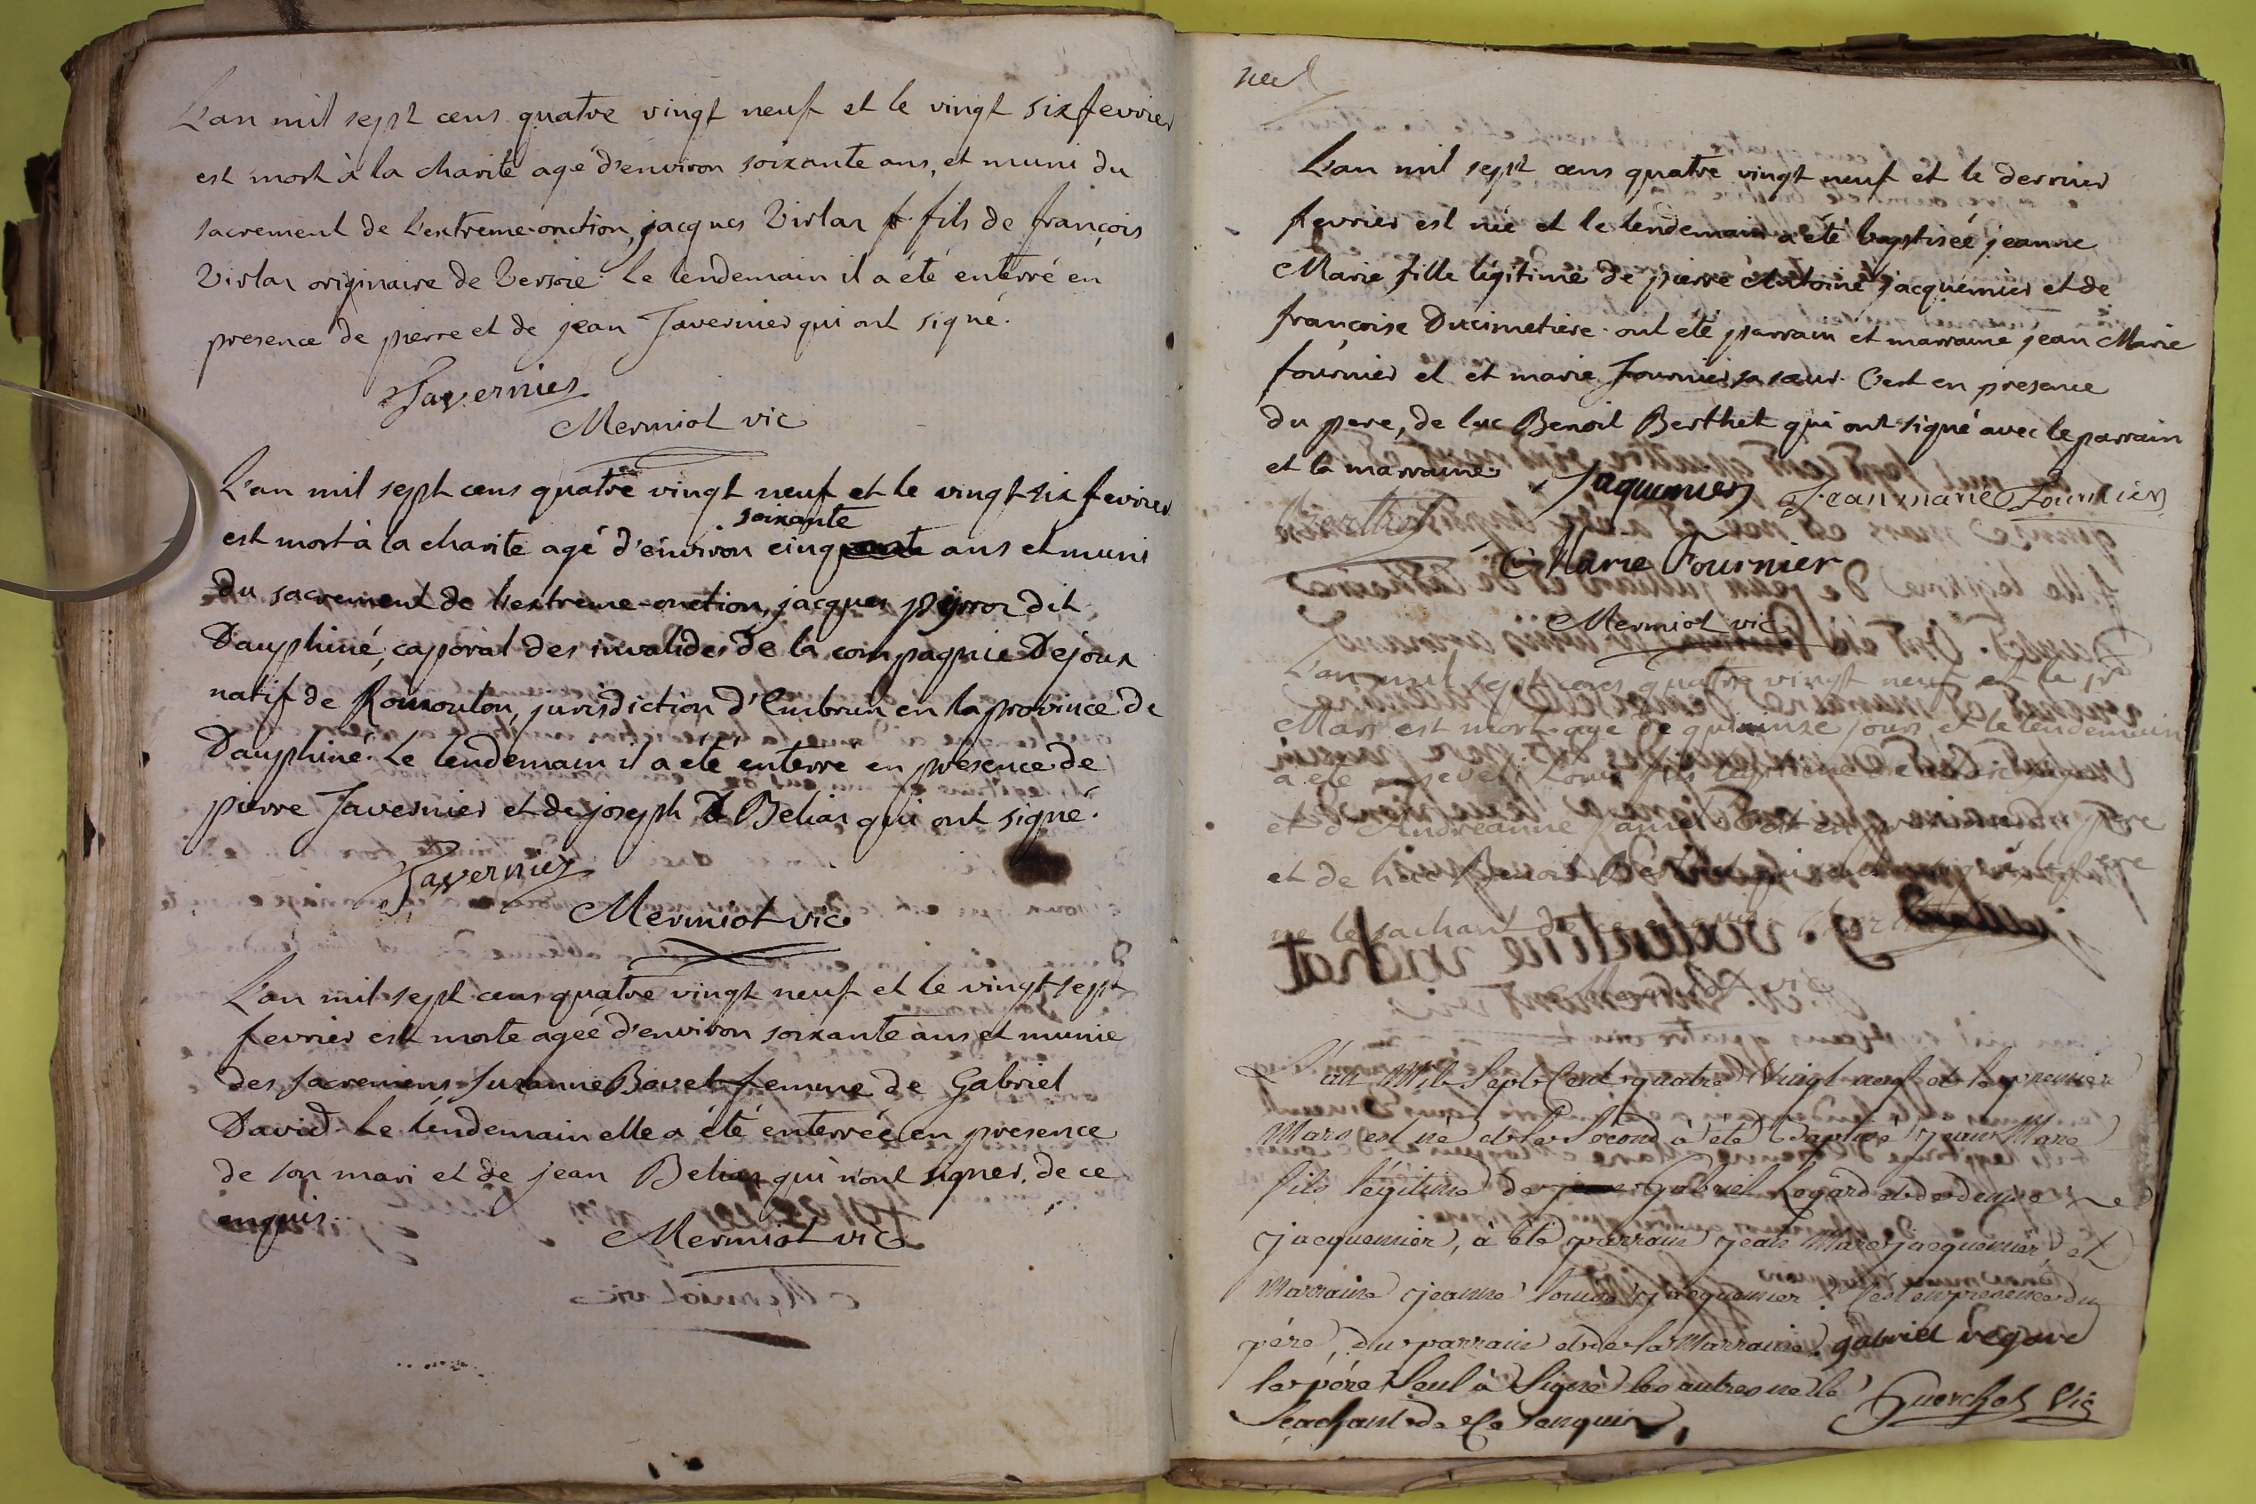 L'an mil sept cens quatre vingt neuf et le vingt six fevrier
est mort à la charité agé d'environ soixante ans, et muni du
sacrement de l'extreme-onction, jacques Virlan fils de françois
Virlan originaire de Versoie. Le lendemain il a été enterré en
presence de pierre et de jean Tavernier qui ont signé.
Tavernier
Mermiot vic
L'an mil sept cens quatre vingt neuf et le vingt six fevrier
soixante
est mort à la charité agé d'environ ans et muni
du sacrement de l'extreme-onction, jacques dit
Dauphiné, caporal des invalides de la compagnie Dejoux
natif de jurisdiction d'Embrun en la province de
Dauphiné. Le lendemain il a été enterré en presence de
pierre Tavernier et de joseph Belian qui ont signé.
Tavernier
Mermiot vic
L'an mil sept cens quatre vingt neuf et le vingt sept
fevrier est morte agée d'environ soixante ans et munie
des sacremens Suzanne Bavet femme de Gabriel
David. Le lendemain elle a été enterrée en presence
de son mari et de jean Belian qui n'ont signer, de ce
enquis.
Mermiot vic
L'an mil sept cens quatre vingt neuf et le dernier
fevrier est née et le lendemain a été baptisée jeanne
Marie fille légitime de pierre Antoine jacquemier et de
françoise Ducimetiere. ont été parrain et marraine jean Marie
fournier et et marie fournier sa sœur. C'est en presence
du pere, de luc Benoit Berthet qui ont signé avec le parrain
et la marraine. Jaquemier Jean marie Fournier
Marie Fournier
Mermiot vic
L'an mil sept cens quatre vingt neuf et le pr
Mars est mort agé de quinze jours et le lendemain
a été enseveli Louis fils légitime de
et d'Andréanne C'est en
et de Luc Benoit Berthet le père
ne le sachant de ce enquis.
L'an Mil Sept Cent quatre Vingt neuf et le premier
Mars est né et le second à été Baptisé jean Marc
fils légitime de Gabriel Regard et de denise
jacquemier, à été parrain jean Marc jacquemier et
Marraine jeanne Louise jacquemier. C'est en presence du
père, du parrain et de la Marraine. gabriel regare
le père Seul à Signé les autres ne le
Seachant de Ce enquis. Guerchet Vic